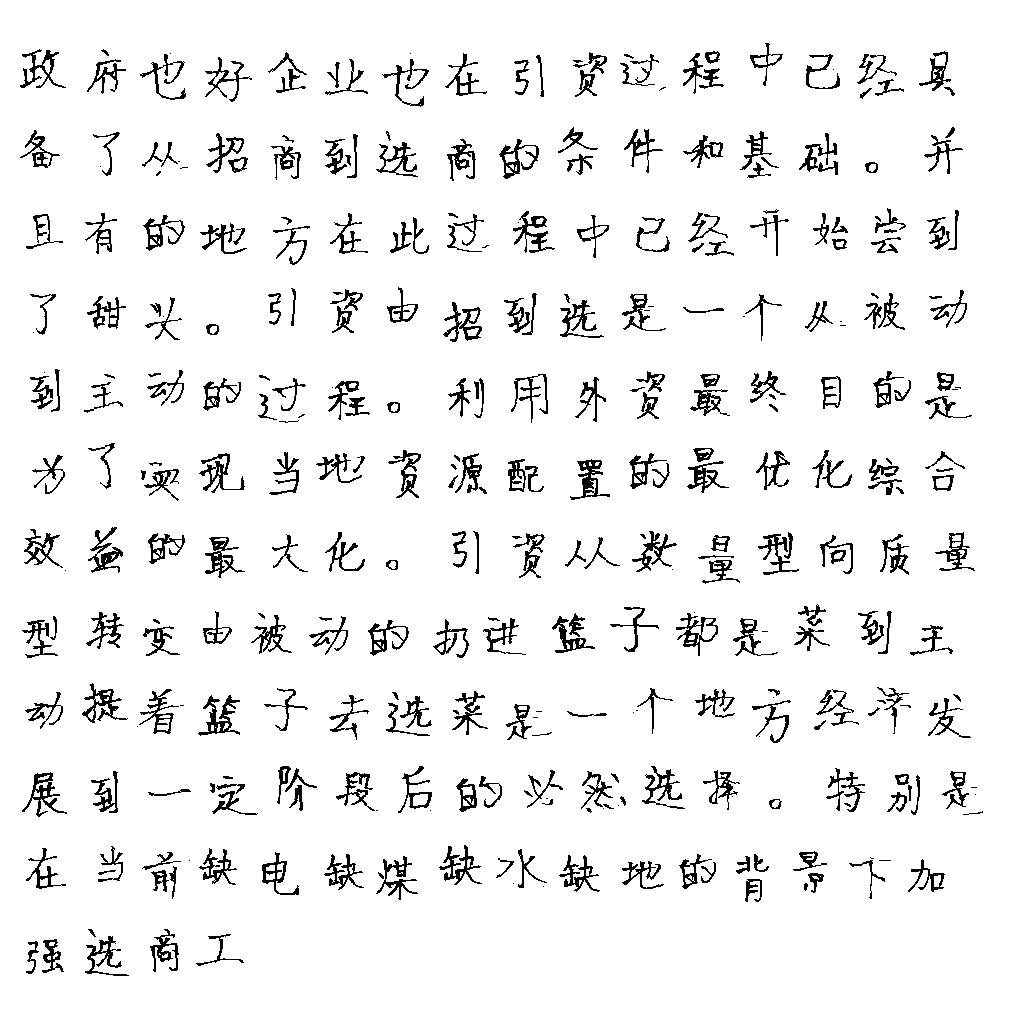 政府也好企业也在引资过程中已经具
备了从招商到选商的条件和基础。并
且有的地方在此过程中已经开始尝到
了甜头。引资由招到选是一个从被动
到主动的过程。利用外资最终目的是
为了实现当地资源配置的最优化综合
效益的最大化。引资从数量型向质量
型转变由被动的扔进篮子都是菜到主
动提着篮子去选菜是一个地方经济发
展到一定阶段后的必然选择。特别是
在当前缺电缺煤缺水缺地的背景下加
强选商工